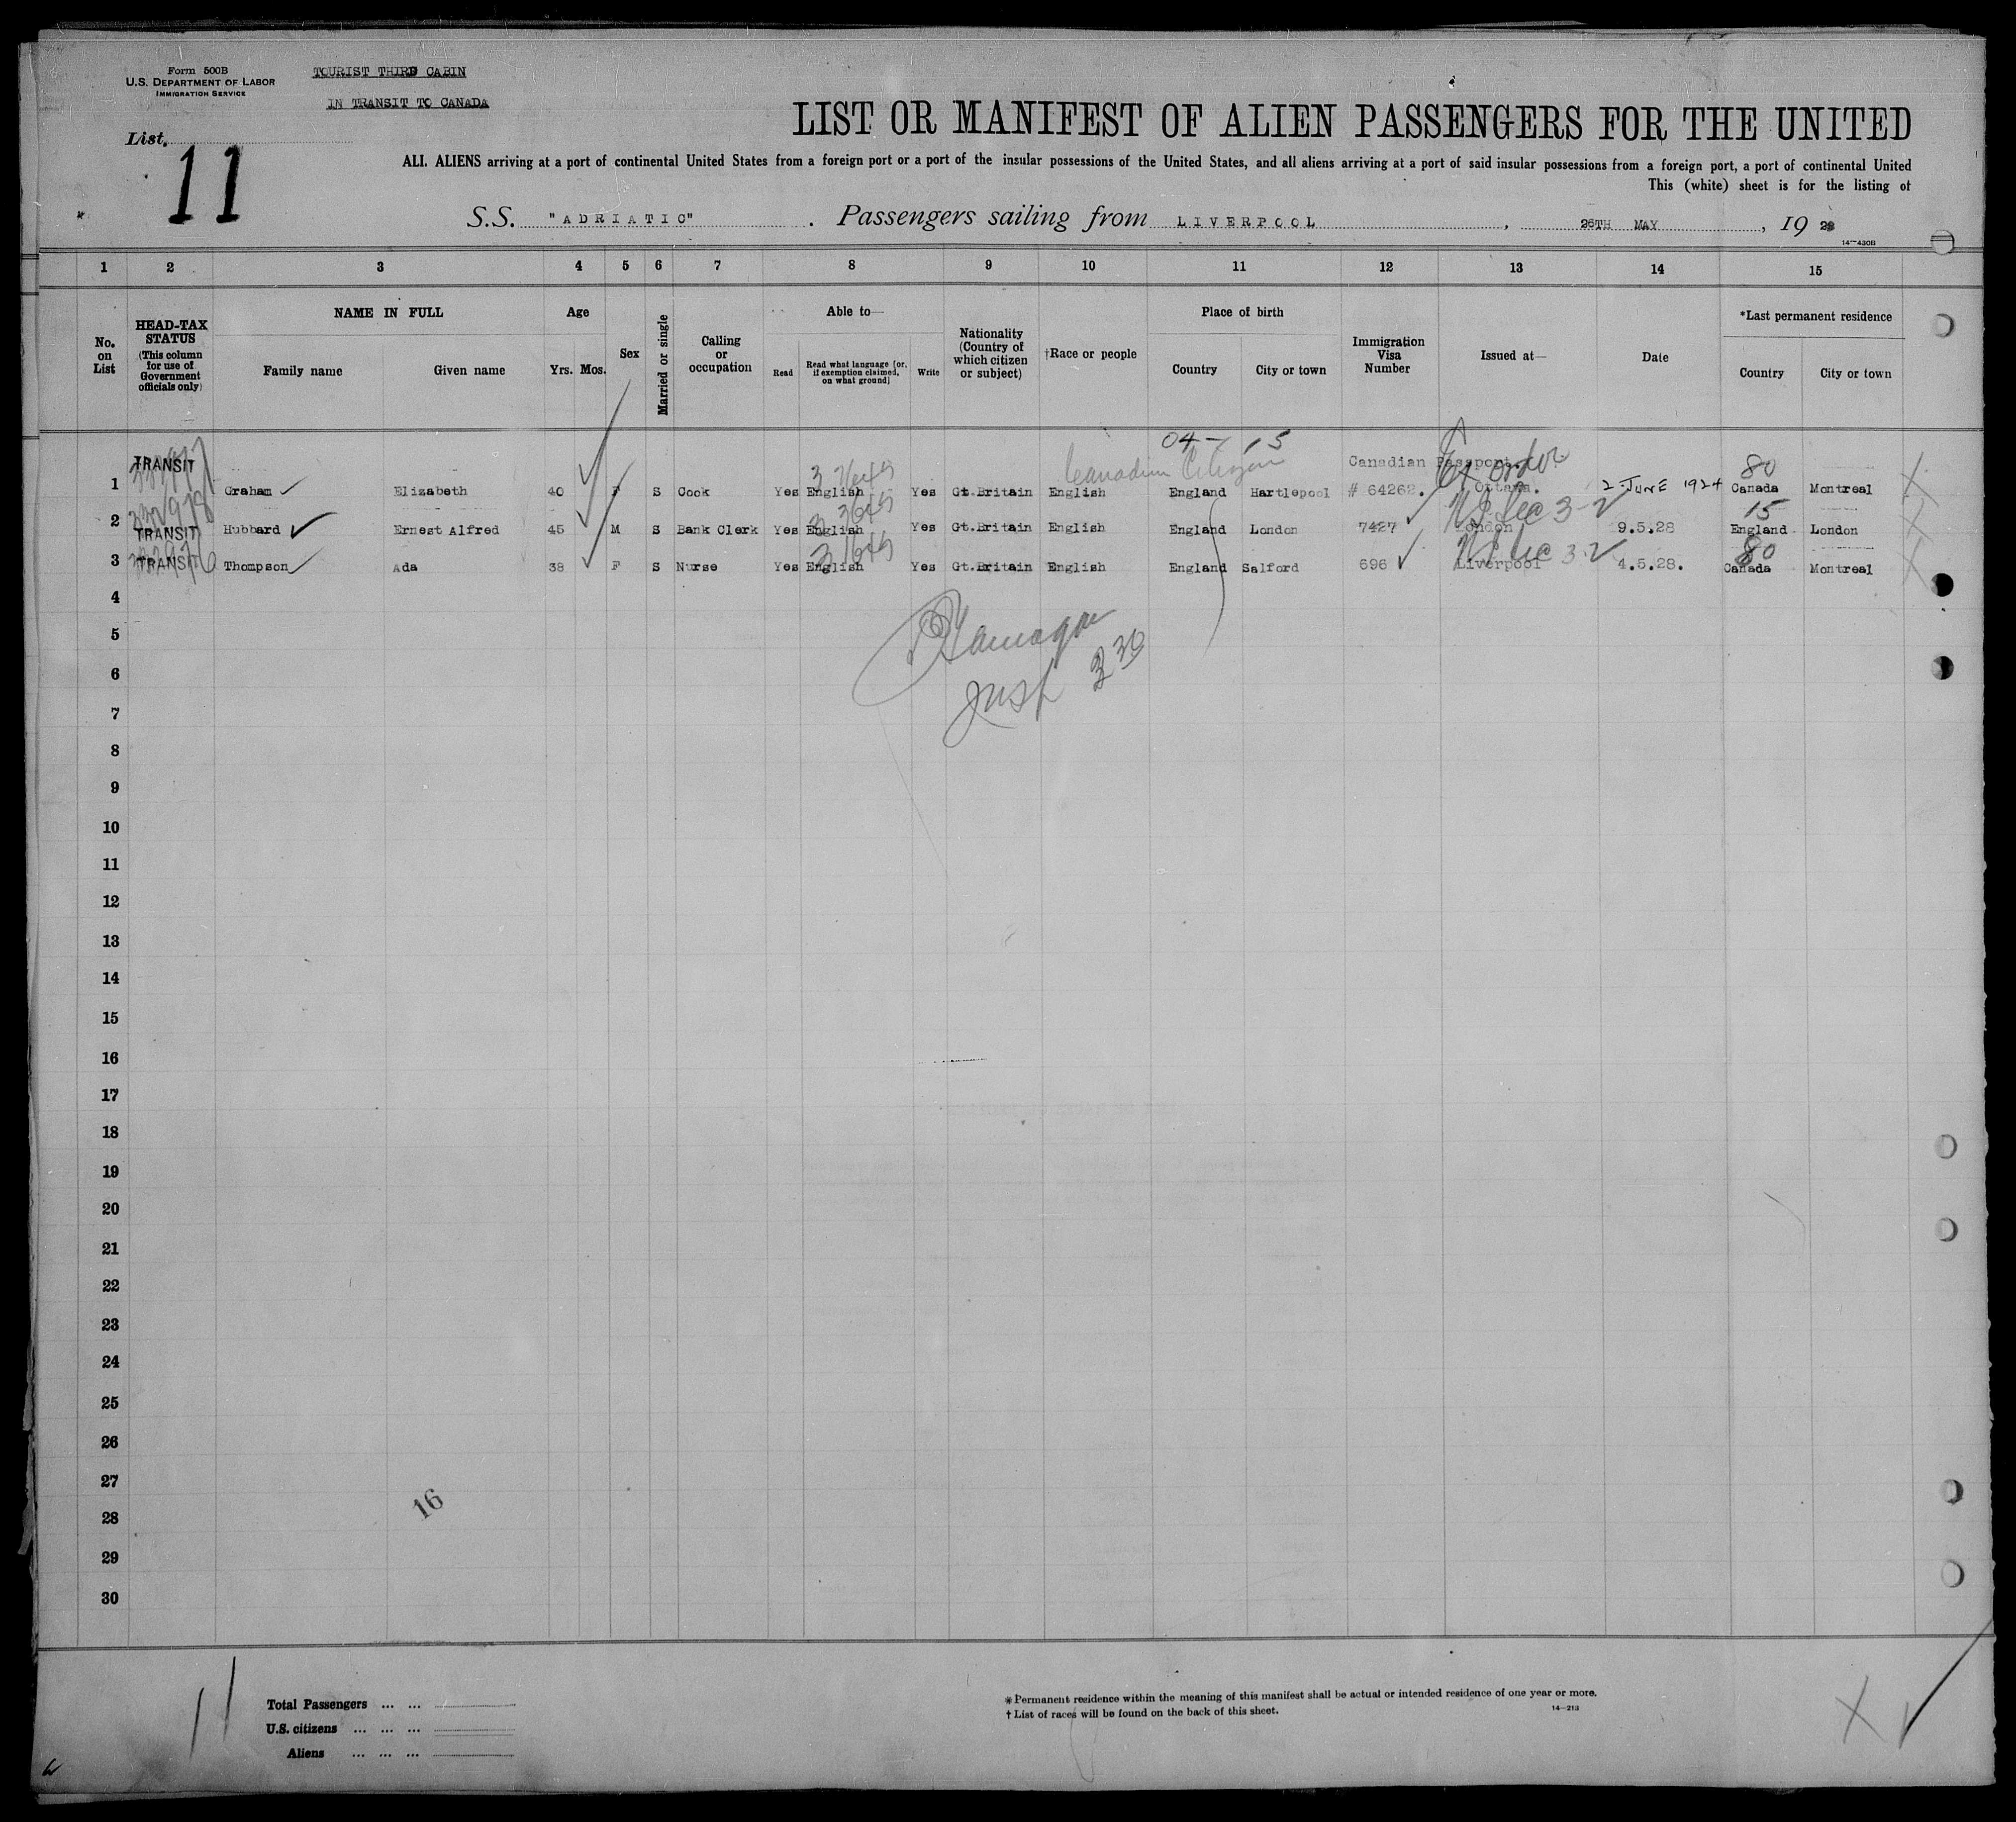 Form 500B
U.S. DEPARTMENT OF LABOR
IMMIGRATION SERVICE
TOURIST THIRD CABIN
IN TRANSIT TO CANADA
List
11
LIST OR MANIFEST OF ALIEN PASSENGERS FOR THE UNITED
ALL ALIENS arriving at a port of continental United States from a foreign port or a port of the insular possessions of the United States, and all aliens arriving at a port of said insular possessions from a foreign port, a port of continental United
This (white) sheet is for the listing of
S.S. "ADRIATIC" . Passengers sailing from LIVERPOOL , 26TH MAY , 19 28
14—430B
1 2 3 4 5 6 7 8 9 10 11 12 13 14 15
No. on List
HEAD-TAX STATUS (This column for use of Government officials only)
NAME IN FULL
Family name Given name
Age
Yrs. Mos.
Sex
Married or single
Calling or occupation
Able to—
Read
Read what language [or, if exemption claimed, on what ground]
Write
Nationality (Country of which citizen or subject)
†Race or people
Place of birth
Country City or town
Immigration Visa Number
Issued at—
Date
*Last permanent residence
Country City or town
04- 15
TRANSIT Canadian Citizen Canadian Passport. 80
1 Graham Elizabeth 40 F S Cook Yes English Yes Gt.Britain English England Hartlepool # 64262. Ottawa. 2 JUNE 1924 Canada Montreal
15
2 TRANSIT Hubbard Ernest Alfred 45 M S Bank Clerk Yes English Yes Gt.Britain English England London 7427 London 9.5.28 England London
80
3 TRANSIT Thompson Ada 38 F S Nurse Yes English Yes Gt.Britain English England Salford 696 Liverpool 4.5.28. Canada Montreal
4
5
6
7
8
9
10
11
12
13
14
15
16
17
18
19
20
21
22
23
24
25
26
27
16
28
29
30
11
Total Passengers ... ...
U.S. citizens ... ... ...
Aliens ... ... ...
* Permanent residence within the meaning of this manifest shall be actual or intended residence of one year or more.
† List of races will be found on the back of this sheet.
14—213